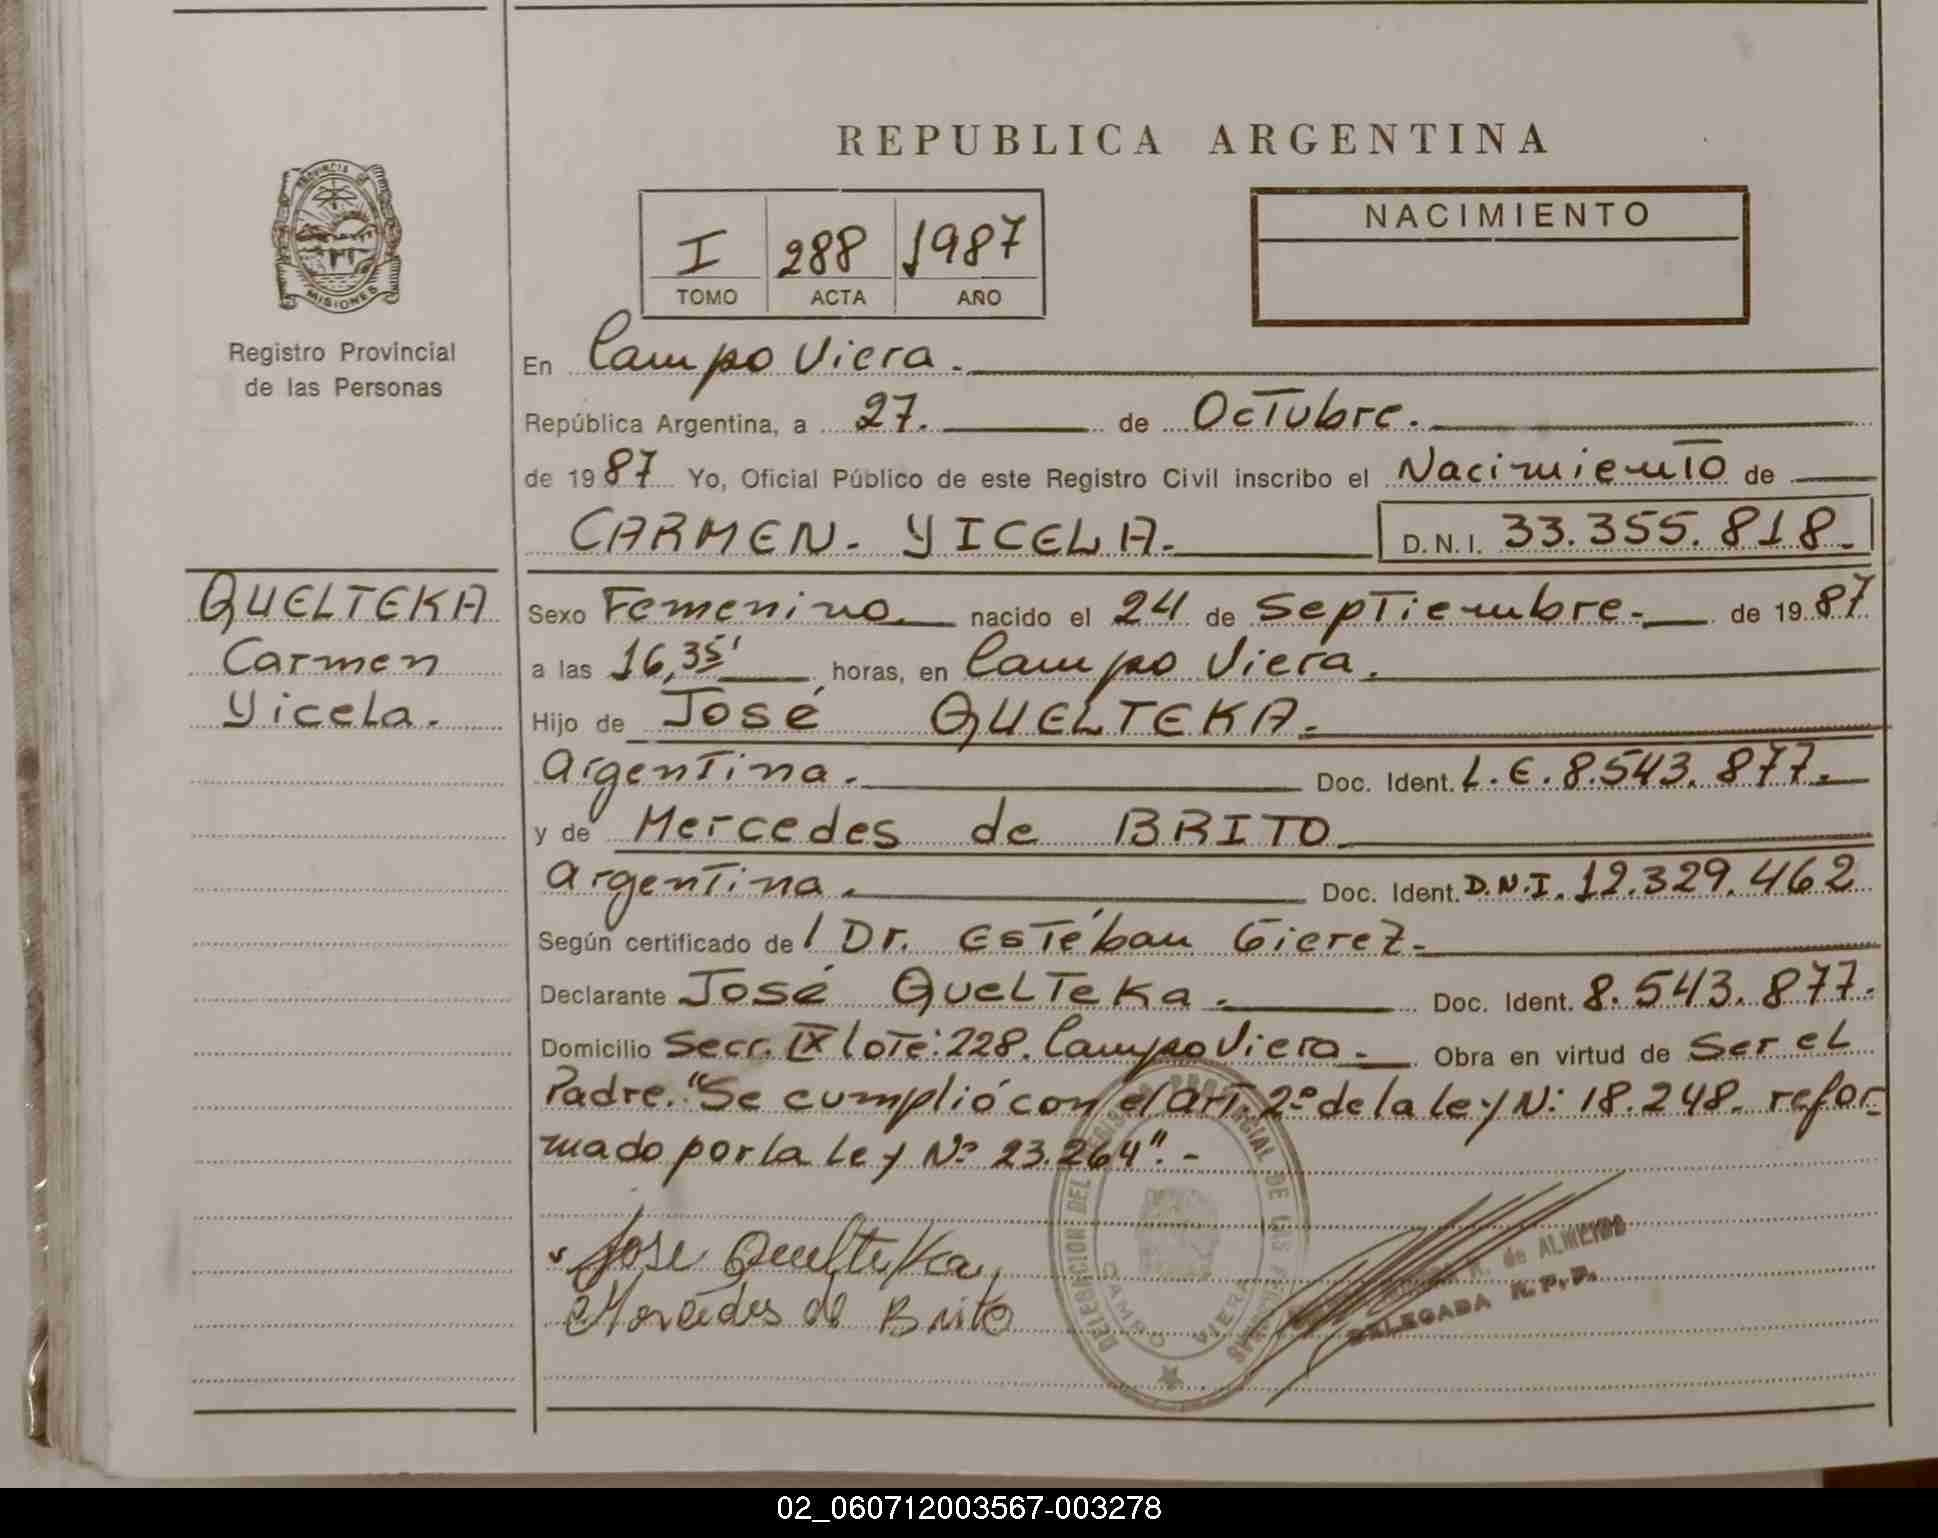 REPUBLICA ARGENTINA
PROVINCIA DE MISIONES
I 288 1987
TOMO ACTA AÑO
NACIMIENTO
Registro Provincial
de las Personas
En Campo Viera.
República Argentina, a 27. de Octubre.
de 1987 Yo, Oficial Público de este Registro Civil inscribo el Nacimiento de
CARMEN. YICELA. D.N.I. 33.355.818.
QUELTEKA
Carmen
Yicela.
Sexo Femenino. nacido el 24 de Septiembre. de 1987
a las 16,35' horas, en Campo Viera.
Hijo de José QUELTEKA.
Argentina. Doc. Ident. L.E. 8.543.877.
y de Mercedes de BRITO
Argentina. Doc. Ident. D.N.I. 12.329.462
Según certificado del Dr. Estéban Gierez.
Declarante José QuelTeka. Doc. Ident. 8.543.877.
Domicilio Secc. IX lote: 228. Campo Viera. Obra en virtud de Ser el
Padre. "Se cumplió con el art. 2º de la ley N: 18.248. refor-
mado por la Ley Nº 23.264".-
Jose Quelteka
Mercedes de Brito
DELEGACION DEL REGISTRO PROVINCIAL DE LAS PERSONAS
CAMPO VIERA
de ALMEIDA
DELEGADA R.P.P.
02_060712003567-003278